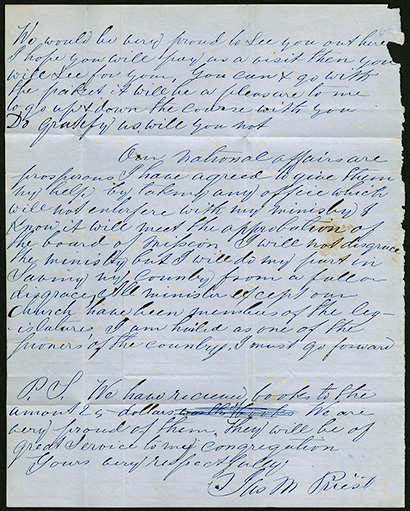 We would be very proud to see you out here
I hope you will pay us a visit then you
will see for your, you can & go with
the packet it will be a pleasure to me
to go up & down the course with you
Do gratify us will you not
Our national affairs are
prosperous I have agreed to give them
my help by taking any office which
will not enterfere with my ministry I
know it will meet the approbation of
the board of mission, I will not disgrace
the ministry but I will do my part in
saving my country from a fall or
disgrace, all minister except our
church have been members of the leg-
islatures, I am hailed as one of the
pioners of the country, I must go forward
P.S. We have received books to the
amount 25 dollars We are
very proud of them, they will be of
great service to my congregation
Yours very respectfully
Jas M Priest